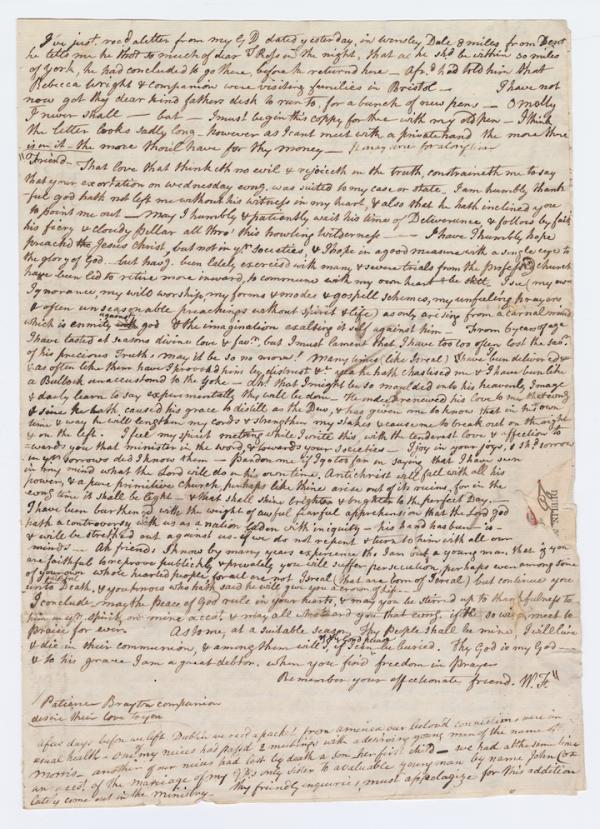 I've just recd a letter from my G D dated yesterday, in Wensley Dale 8 miles from Dent
he tells me he thot so much of dear T Ross in the night, that as he shd be within 30 miles
of York, he had concluded to go there, before he returned here - had told him that
Rebecca Wright & companion were visiting families in Bristol - I have not
now got thy dear kind fathers desk to run to, for a bunch of new pens - O molly
I never shall - but - I must begin this coppy for thee with my old pen - I think
the letter looks sadly long - however as I cant meet with a private hand the more there
is in it - the more thou'll have for thy money -
"Friend - That love that thinketh no evil & rejoiceth in the truth, constraineth me to say
that your exortation on wednesday eveng, was suited to my case or state. I am humbly thank
ful god hath not left me without his witness in my heart, & also that he hath inclined you
to point me out - May I humbly & patiently wait his time of Deliverance, & follow by faith
his fiery & cloudy Pellar all thro' this howling wilderness - I have I humbly hope
preached Jesus Christ, but not in yr Societies, & I hope in a good measure with a single eye to
the glory of God - but havg been lately exercised with many & severe trials from the Professg Church
have been led to retire more inward, to commune with my own heart & be still, I see (my own
Ignorance, my will worship, my forms & modes & gospell schemes, my unfeeling prayers
& often unseasonable preachings without spirit & life) as only arising from a carnal mind
which is enmity against god & the imagination exalting itself against him - From by of age
I have tasted at seasons divine love & favr, but I must lament that I have too too often lost the savr
of his precious Truth; may it be so no more! Many times (like Isreal) I have been delivered &
as often like them have I provoked him by distrust & yea he hath chastised me & I have been like
a Bullock unaccustomed to the Yoke - Oh! that I might be so moulded into his heavenly Image
& daily learn to say experimentally thy will be done - He indeed renewed his Love to me that eveng
& since he hath caused his grace to distill as the Dew, & has given me to know that in his own
time & way he will lengthen my cords & strengthen my stakes & cause me to break out on the right
& on the left. I feel my spirit melting while I write this, with the tenderest love & affection to
wards you that minister in the word, & towards your Societies - I joy in your joys, & shd sorrow
in yr sorrows did I know them - Pardon me if I go too far in saying that I have seen
in my mind what the Lord will do in his own time, Antichrist will fall with all his
powers, & a pure primitive church perhaps like thine arise out of its ruins, for in the
eveng time it shall be light - & that shall shine brighter & brighter to the perfect Day -
I have been burthened with the weight of awful fearful apprehension that the Lord god
hath a controversy with us as a nation laden with iniquity - his hand has been - is -
& will be stretched out against us - if we do not repent & turn to him with all our
minds - Ah friends I know by many years experience tho I am but a young man, that if you
are faithful to reprove publickly & privately you will suffer persecution, perhaps even among some
of your own whole hearted people for all are not Isreal (that are born of Isreal) but continue you
faithful unto Death, & you know who hath said he will give you a crown of life -
I conclude may the Peace of God rule in your hearts, & may you be stirred up to thankfulness to
him in yr spirits on mine acct, & may all who heard you that eveng if the so will meet to
praise for ever. As to me, at a suitable season, Thy People shall be mine, I will live
& die in their communion, & among them will I if I can be buried. Thy God is my God -
& to his grace I am a great debtor. when you find freedom in Prayer
Remember your affectionate friend. W. F."
Patience Brayton companion
desire their love to you
A few days before we left Dublin we recd a packt from america our belovd connections were in
usual health - One of my neices had passed 2 meetings with a deserving young man of the name of
Morris - another of our neices had lost by death a son her first child - we had at the same time
an acct of the marriage of my only Sister to a valuable young man by name John Cox
late is come out in the ministry - Thy friendly inquiries, must appologize for this addition